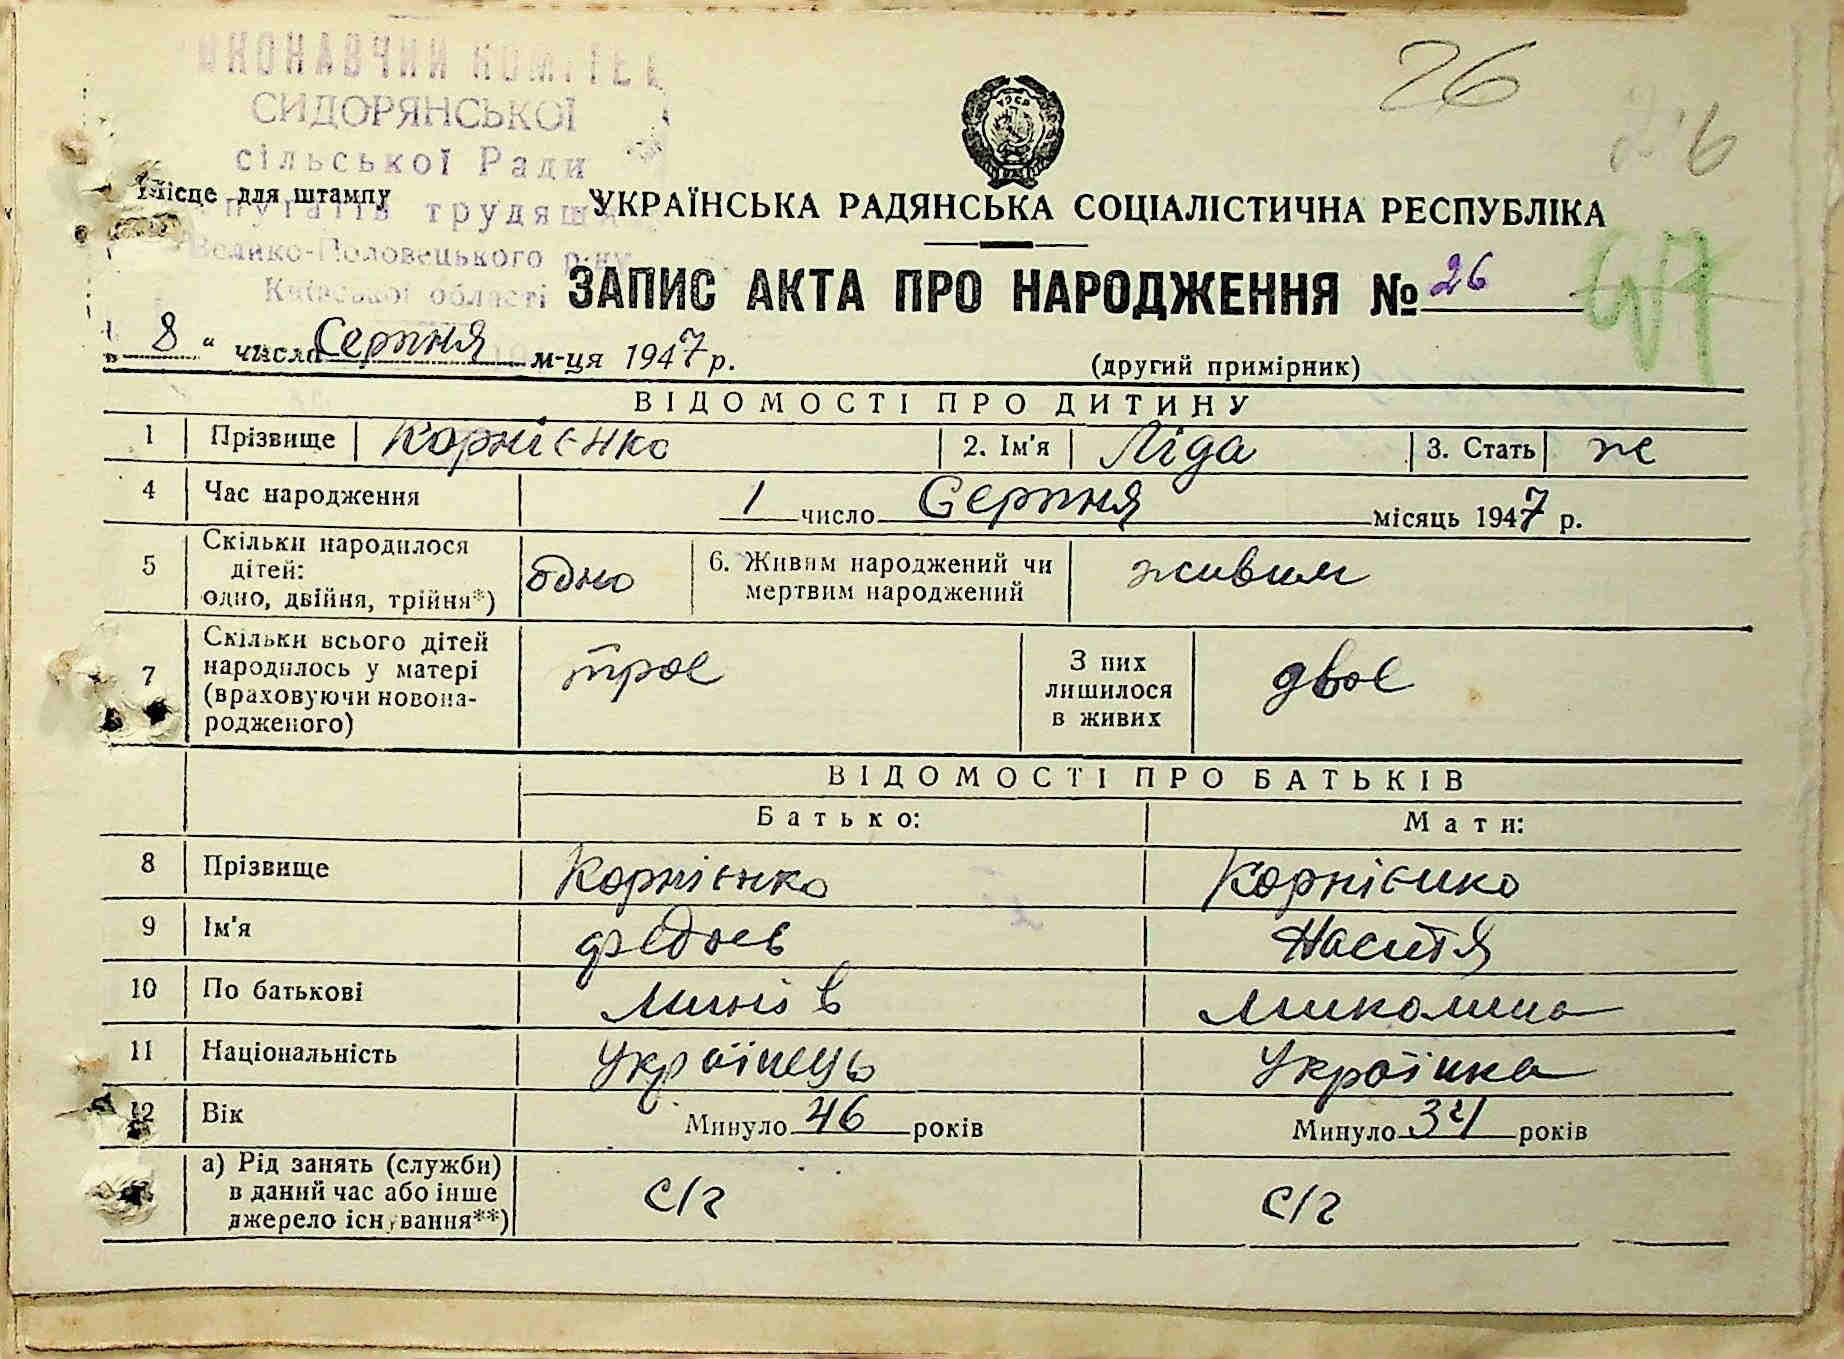 26
26
ВИКОНАВЧИЙ КОМІТЕТ
СИДОРЯНСЬКОЇ
сільської Ради
Місце для штампу
депутатів трудящих
Велико-Половецького р-ну
Київської області
УКРАЇНСЬКА РАДЯНСЬКА СОЦІАЛІСТИЧНА РЕСПУБЛІКА
ЗАПИС АКТА ПРО НАРОДЖЕННЯ № 26
„ 8 “ числа Серпня м-ця 1947 р.
(другий примірник)
ВІДОМОСТІ ПРО ДИТИНУ
1 Прізвище Корнієнко 2. Ім'я Ліда 3. Стать ж
4 Час народження 1 число Серпня місяць 1947 р.
5 Скільки народилося дітей: одно, двійня, трійня*) одно 6. Живим народжений чи мертвим народжений живим
7 Скільки всього дітей народилось у матері (враховуючи новонародженого) троє З них лишилося в живих двоє
ВІДОМОСТІ ПРО БАТЬКІВ
Батько: Мати:
8 Прізвище Корнієнко Корнієнко
9 Ім'я Настя
10 По батькові
11 Національність Українець Українка
12 Вік Минуло 46 років Минуло 34 років
а) Рід занять (служби) в даний час або інше джерело існування**) с/г с/г